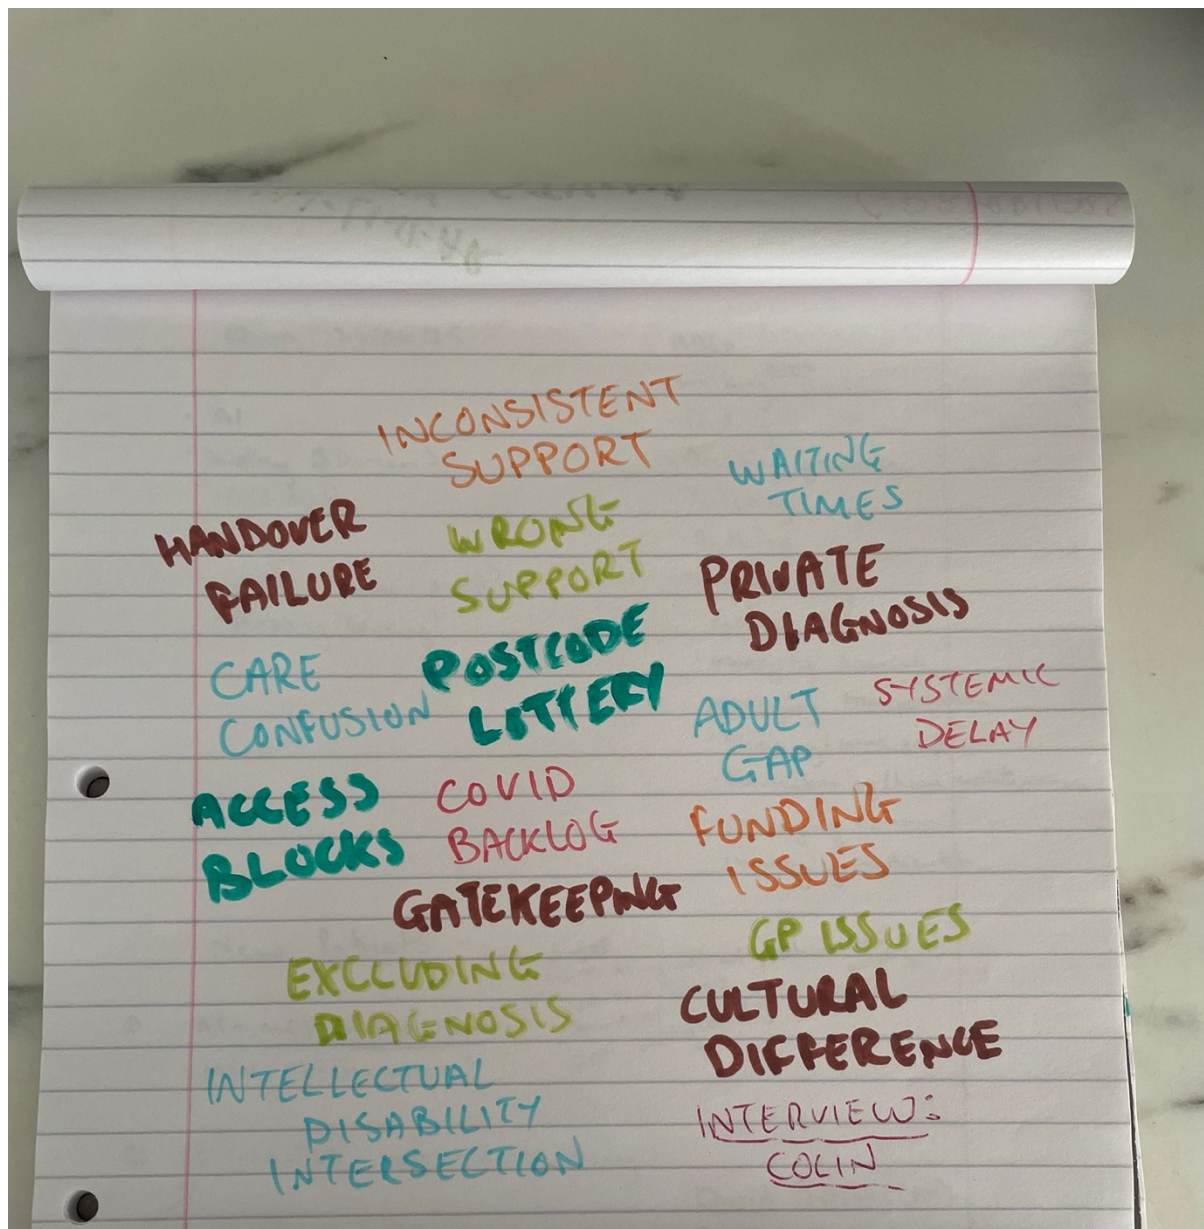 INCONSISTENT
SUPPORT
WAITING
TIMES
HANDOVER
FAILURE
WRONG
SUPPORT
PRIVATE
DIAGNOSIS
CARE
CONFUSION
POSTCODE
LOTTERY
ADULT
GAP
SYSTEMIC
DELAY
ACCESS
BLOCKS
COVID
BACKLOG
FUNDING
ISSUES
GATEKEEPING
GP ISSUES
EXCLUDING
DIAGNOSIS
CULTURAL
DIFFERENCE
INTELLECTUAL
DISABILITY
INTERSECTION
INTERVIEW:
COLIN